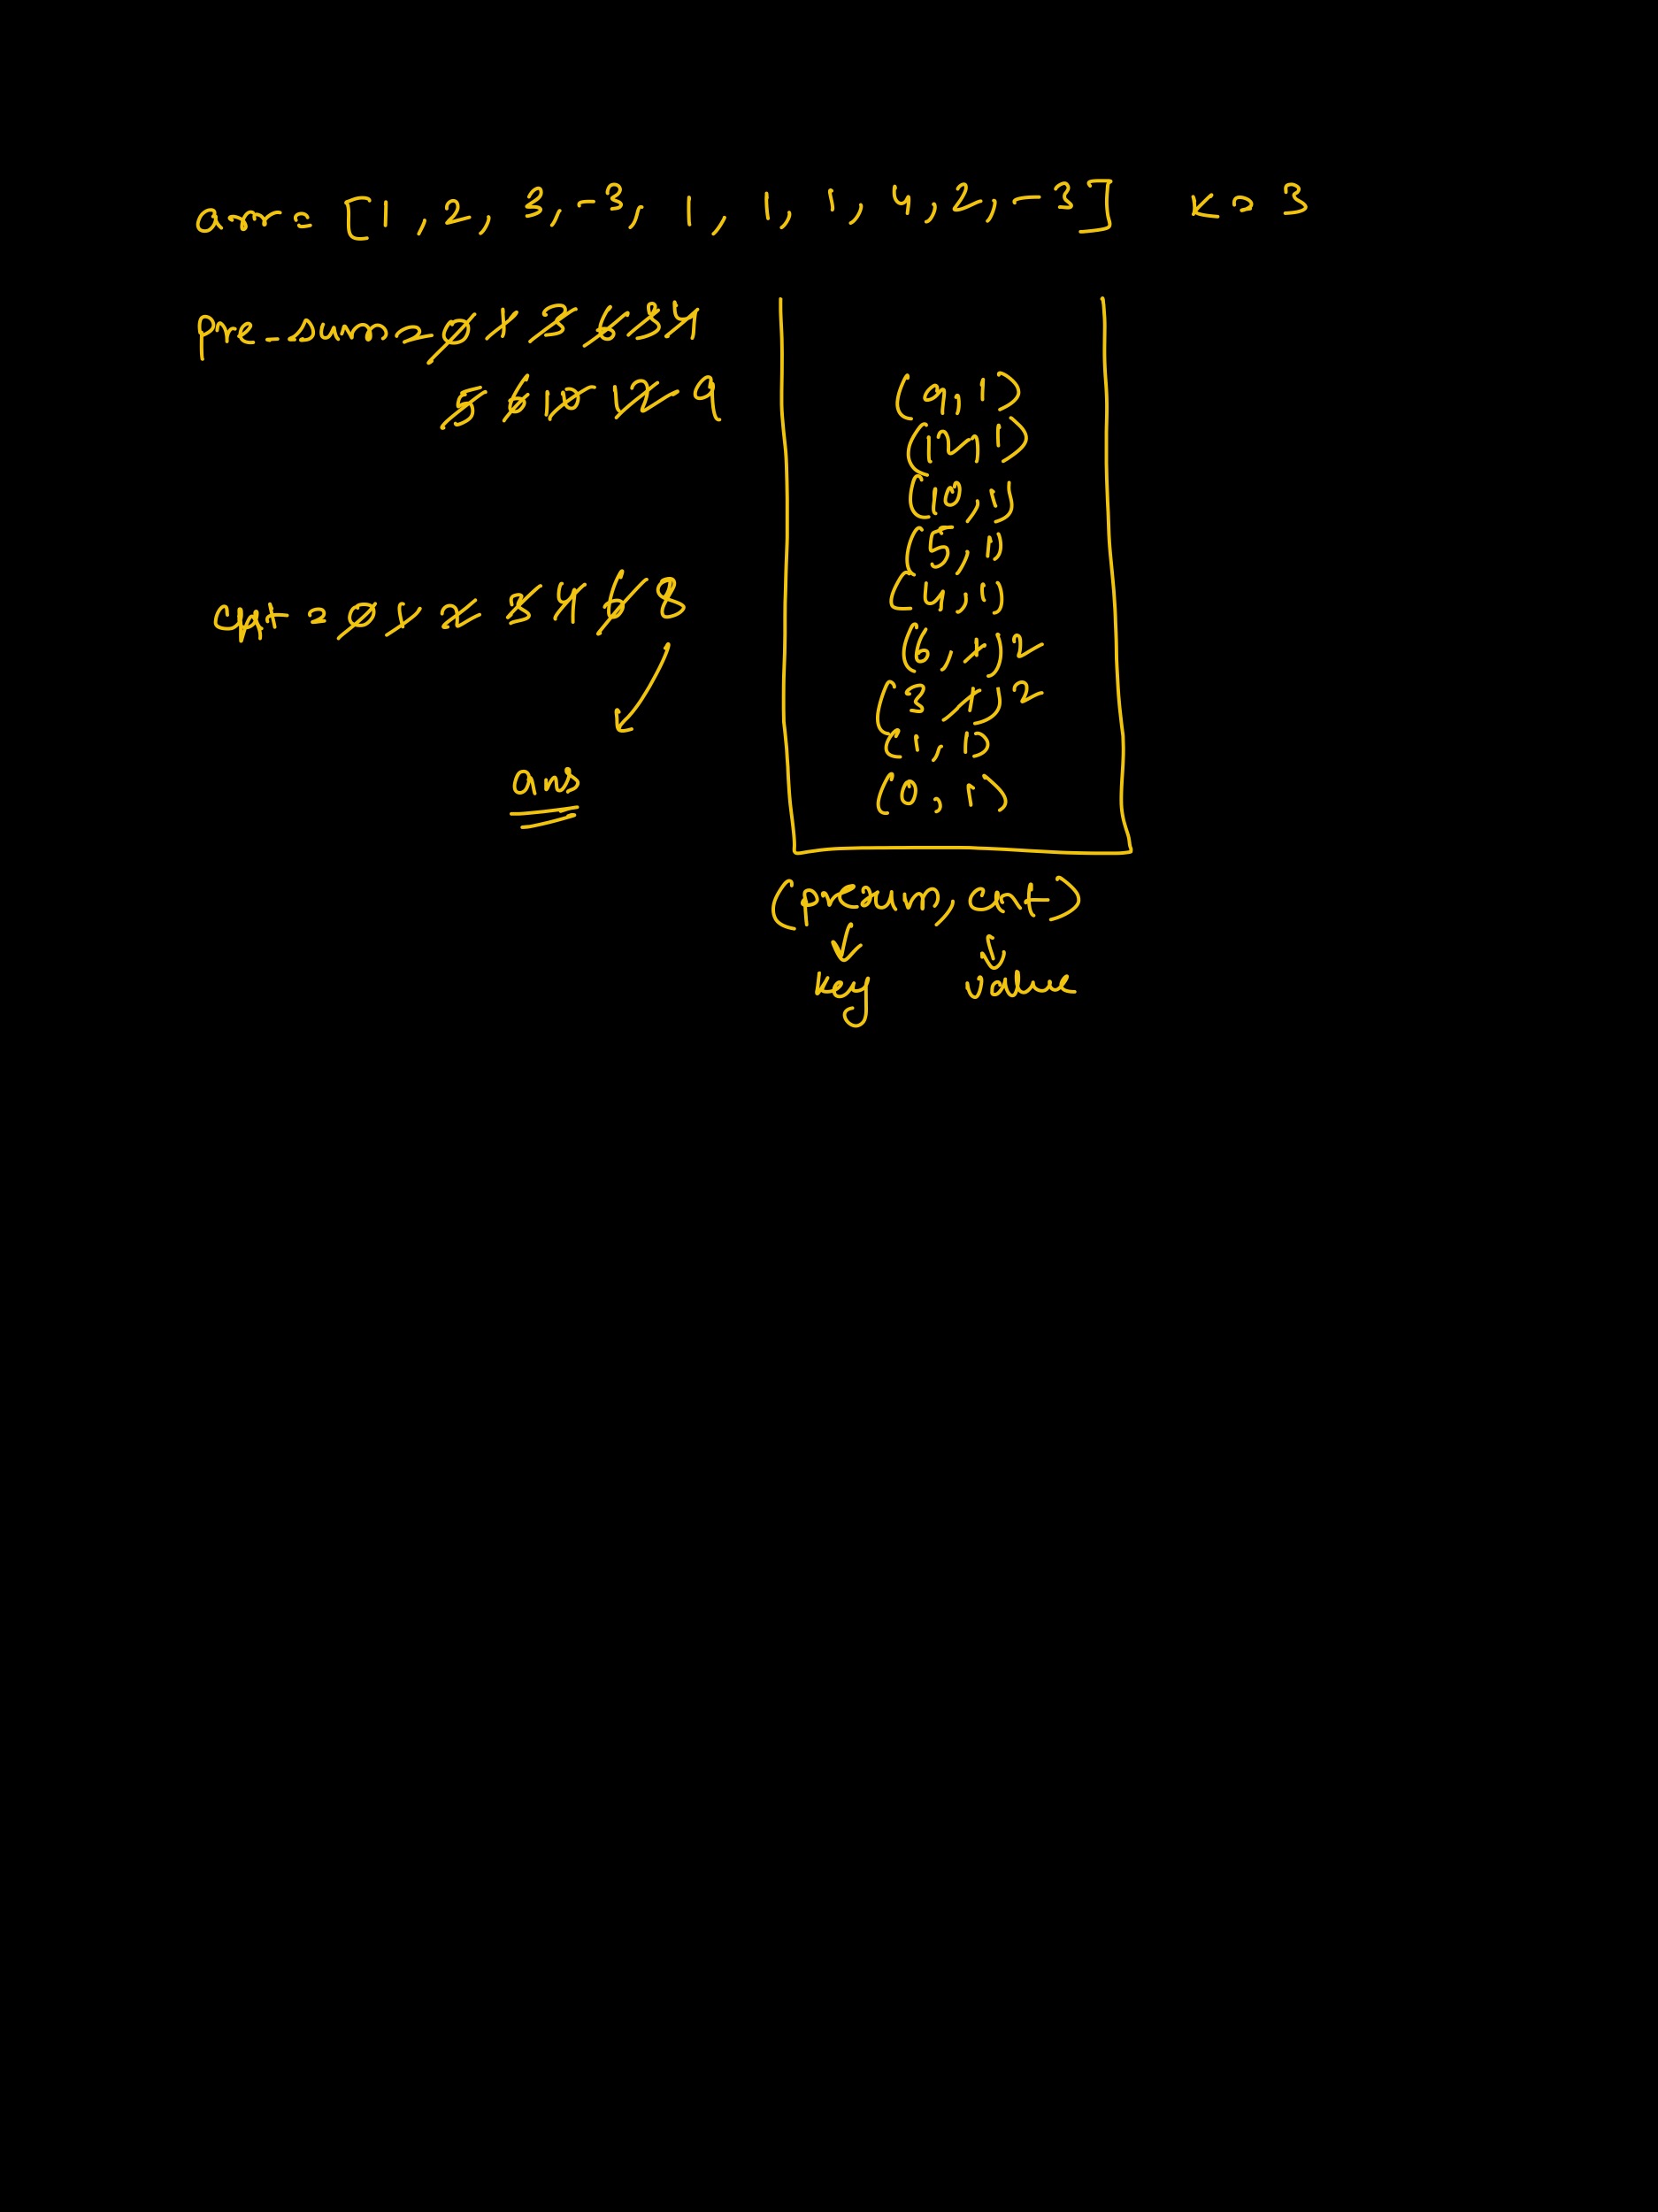 arr = [1, 2, 3, -3, 1, 1, 1, 4, 2, -3] K = 3
pre-sum = 0 1 3 6 3 4
5 6 10 12 9
cnt = 0 1 2 3 4 6 8
ans
(9, 1)
(12, 1)
(10, 1)
(5, 1)
(4, 1)
(6, 1) 2
(3, 1) 2
(1, 1)
(0, 1)
(presum, cnt)
key value